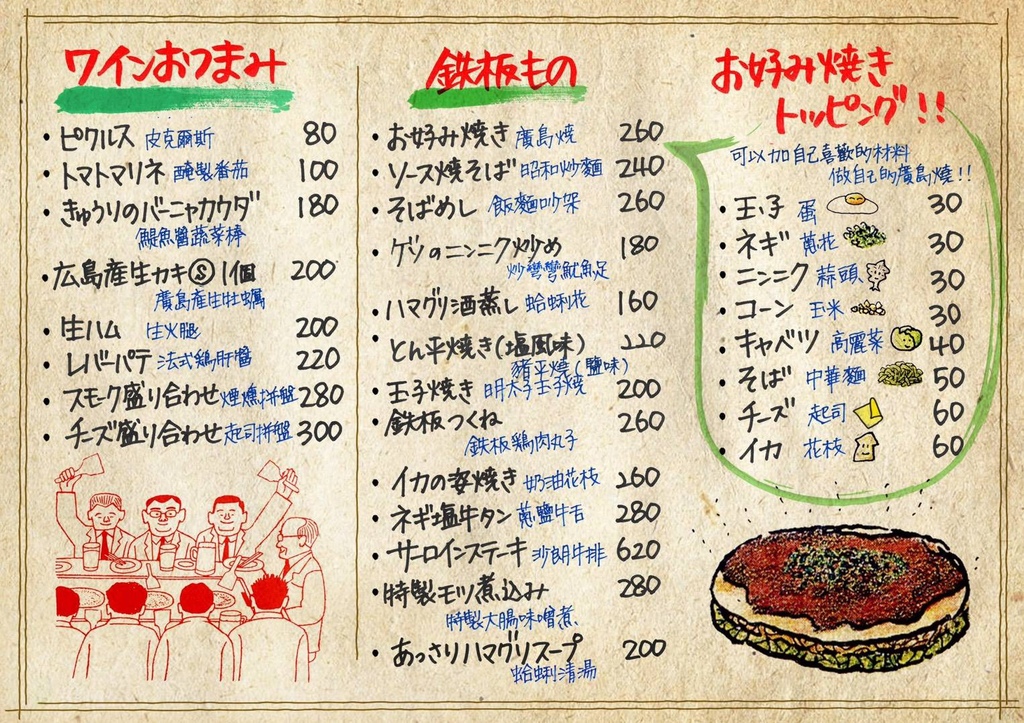 ワインおつまみ
・ピクルス 皮克爾斯 80
・トマトマリネ 醃製番茄 100
・きゅうりのバーニャカウダ 180
鯷魚醬蔬菜棒
・広島産生カキⓈ1個 200
廣島產生牡蠣
・生ハム 生火腿 200
・レバーパテ 法式鶏肝醬 220
・スモーク盛り合わせ 煙燻拼盤 280
・チーズ盛り合わせ 起司拼盤 300
鉄板もの
・お好み焼き 廣島燒 260
・ソース焼そば 昭和炒麵 240
・そばめし 飯麵吵架 260
・ゲソのニンニク炒め 180
炒彎彎魷魚足
・ハマグリ酒蒸し 蛤蜊花 160
・とん平焼き(塩風味) 220
豬平燒(鹽味)
・玉子焼き 明太子玉子燒 200
・鉄板つくね 260
鉄板鶏肉丸子
・イカの姿焼き 奶油花枝 260
・ネギ塩牛タン 蔥鹽牛舌 280
・サーロインステーキ 沙朗牛排 620
・特製モツ煮込み 280
特製大腸味噌煮
・あっさりハマグリスープ 200
蛤蜊清湯
お好み焼き
トッピング!!
可以加自己喜歡的材料
做自己的廣島燒!!
・玉子 蛋 30
・ネギ 蔥花 30
・ニンニク 蒜頭 30
・コーン 玉米 30
・キャベツ 高麗菜 40
・そば 中華麵 50
・チーズ 起司 60
・イカ 花枝 60